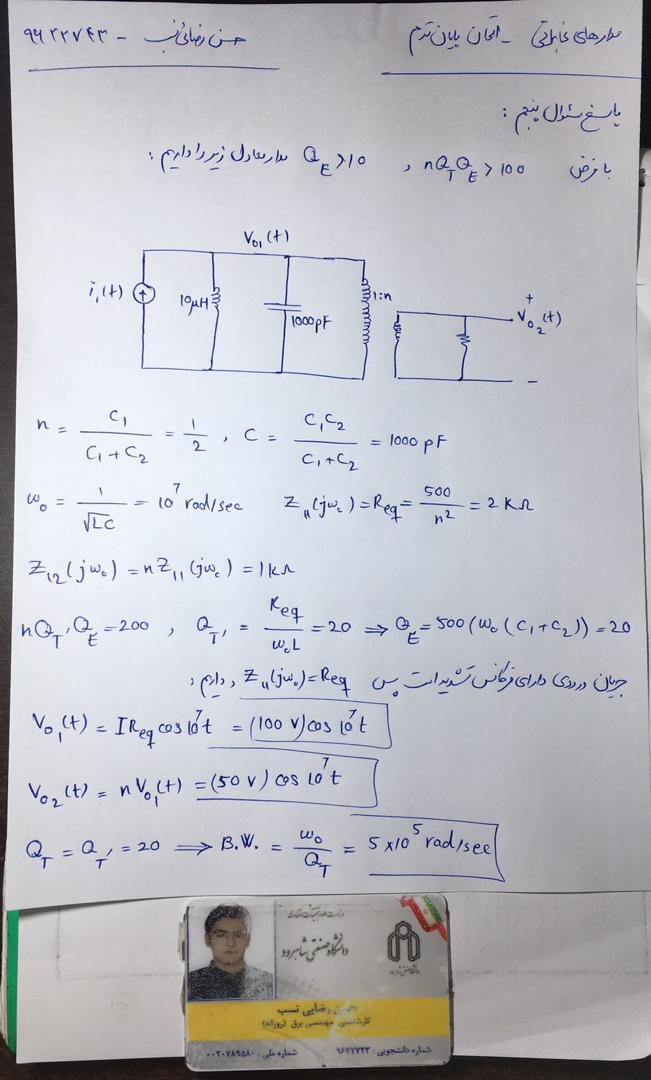 مدارهای مخابراتی - امتحان پایان ترم
حسن رضائی نسب - ۹۶۲۲۷۴۳
پاسخ سئوال پنجم :
با فرض nQ_T Q_E > 100 , Q_E > 10 مدار معادل زیر را داریم :
V_{o1}(t)
i_1(t) 10μH 1000pF 1:n + V_{o2}(t) -
n = C_1/(C_1+C_2) = 1/2 , C = C_1C_2/(C_1+C_2) = 1000 pF
ω_o = 1/√LC = 10^7 rad/sec Z_{11}(jω_o) = R_eq = 500/n^2 = 2 KΩ
Z_{12}(jω_o) = nZ_{11}(jω_o) = 1KΩ
nQ_{T'}Q_E = 200 , Q_{T'} = R_eq/ω_oL = 20 ⇒ Q_E = 500(ω_o(C_1+C_2)) = 20
جریان ورودی دارای فرکانس تشدید است پس Z_{11}(jω_o) = R_eq , داریم :
V_{o1}(t) = I R_eq cos 10^7 t = (100 V) cos 10^7 t
V_{o2}(t) = n V_{o1}(t) = (50 V) cos 10^7 t
Q_T = Q_{T'} = 20 ⟹ B.W. = ω_o/Q_T = 5 × 10^5 rad/sec
دانشگاه صنعتی شاهرود
رضایی نسب
کارشناسی مهندسی برق (روزانه)
شماره دانشجویی : ۹۶۲۷۷۴۳
شماره ملی : ۰۰۲۰۷۸۹۵۸۰